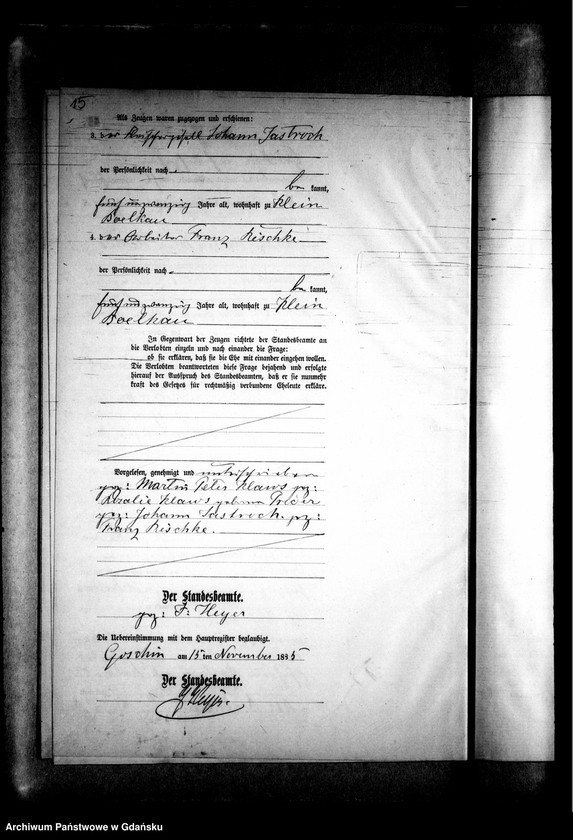 15
Als Zeugen waren zugezogen und erschienen:
3. der Johann Jastroch
der Persönlichkeit nach
be kannt,
fünf und zwanzig Jahre alt, wohnhaft zu Klein
Boelkau
4. der Arbeiter Franz Rischke
der Persönlichkeit nach
be kannt,
fünf und zwanzig Jahre alt, wohnhaft zu Klein
Boelkau
In Gegenwart der Zeugen richtete der Standesbeamte an
die Verlobten einzeln und nach einander die Frage:
ob sie erklären, daß sie die Ehe mit einander eingehen wollen.
Die Verlobten beantworteten diese Frage bejahend und erfolgte
hierauf der Ausspruch des Standesbeamten, daß er sie nunmehr
kraft des Gesetzes für rechtmäßig verbundene Eheleute erkläre.
Vorgelesen, genehmigt und unterschrieben
gez: Martin Peter Klaws gez:
Rosalie Klaws geborne
gez: Johann Jastroch. gez:
Franz Rischke.
Der Standesbeamte.
gez: F: Heyer
Die Uebereinstimmung mit dem Hauptregister beglaubigt.
Goschin am 15 ten November 1885
Der Standesbeamte.
Heyer.
Archiwum Państwowe w Gdańsku